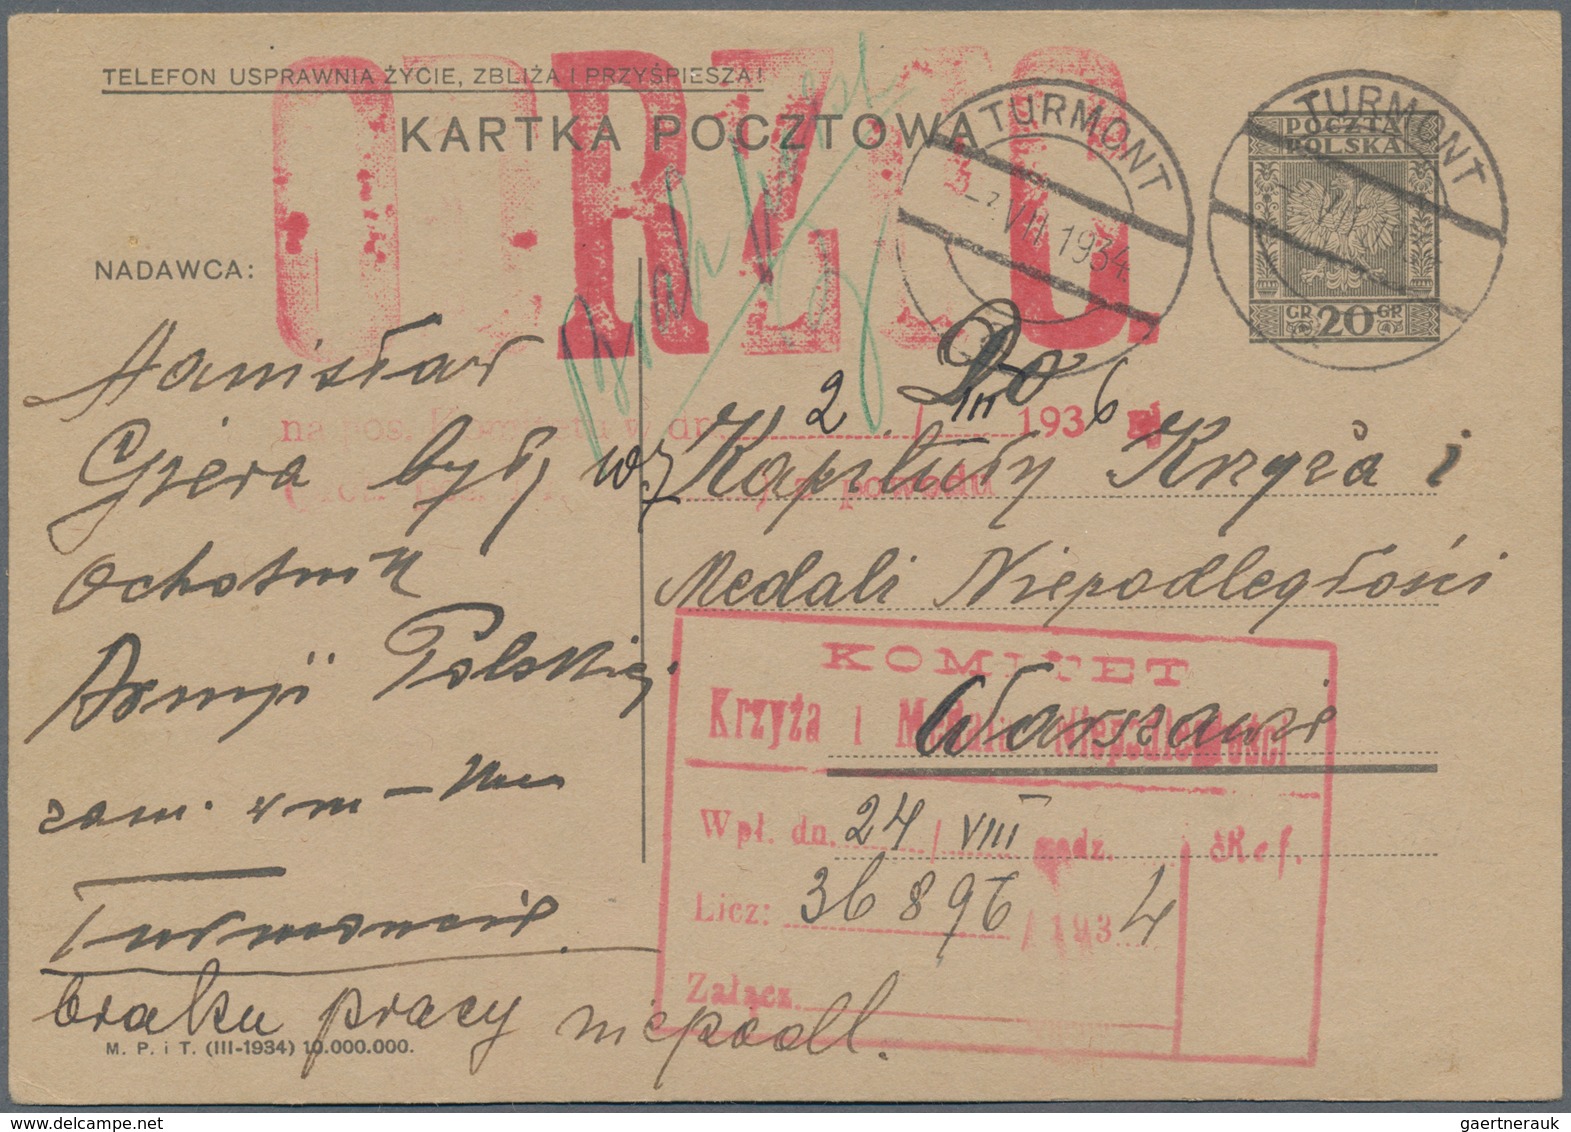 TELEFON USPRAWNIA ŻYCIE, ZBLIŻA I PRZYŚPIESZA!
KARTKA POCZTOWA
ODRZUC.
TURMONT
3 -7.VII 1934
TURMONT
POCZTA
POLSKA
GR 20 GR
NADAWCA:
Stanisław
Giera były
ochotnik
Armji Polskiej.
zam. w m-ku
Turmoncie.
na pos. Komitetu w dn. 2 / III 1936 r.
z powodu
braku pracy niepodl.
Do
Kapituły Krzyża i
Medali Niepodległości
Warszawie
KOMITET
Krzyża i Medalu Niepodległości
Wpł. dn. 24 / VIII godz. Ref.
Licz: 36896 / 1934
Załącz.
M. P. i T. (III-1934) 10.000.000.
gaertnerauk @ delcampe.net